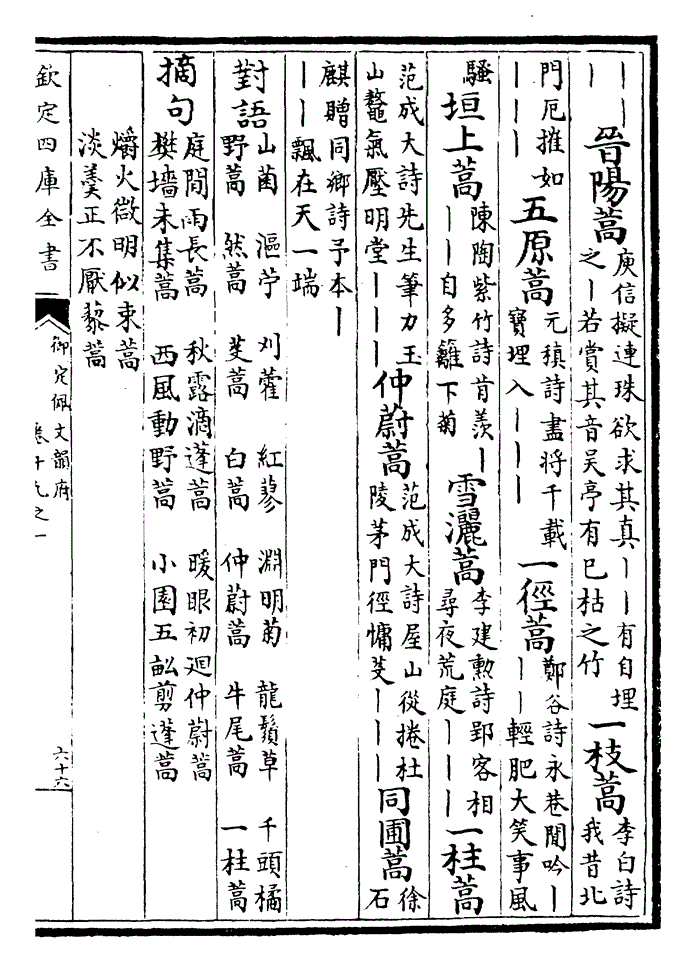 丨丨丨晉陽蒿庾信擬連珠欲求其真丨丨有自埋之丨若賞其音吳亭有已枯之竹一枝蒿李白詩我昔北
門厄摧如丨丨丨五原蒿元稹詩盡將千載寶埋入丨丨丨一徑蒿鄭谷詩永巷閒吟丨丨丨輕肥大笑事風
騷垣上蒿陳陶紫竹詩肯羨丨丨丨自多籬下菊雪灑蒿李建勲詩郢客相尋夜荒庭丨丨丨一柱蒿
范成大詩先生筆力玉山鼇氣壓明堂丨丨丨仲蔚蒿范成大詩屋山從捲杜陵茅門徑慵芟丨丨丨同圃蒿徐石
麒贈同鄉詩予本丨丨丨飄在天一端
對語 山菌 野蒿 漚苧 然蒿 刈藿 芟蒿 紅蓼 白蒿 淵明菊 仲蔚蒿 龍鬚草 牛尾蒿 千頭橘 一柱蒿
摘句 庭間雨長蒿 樊墻未集蒿 秋露滴蓬蒿 西風動野蒿 暖眼初迴仲蔚蒿 小園五畝剪蓬蒿
爝火微明似束蒿 淡羹正不厭藜蒿
欽定四庫全書
御定佩文韻府
卷十九之一
六十六